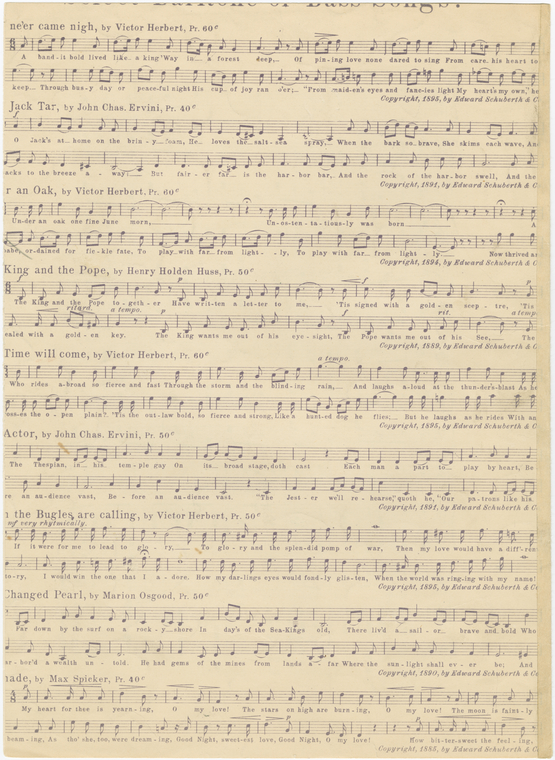 Baritone or Bass Songs.
ne'er came nigh, by Victor Herbert, Pr. 60¢
A band-it bold lived like a king 'Way in a forest deep. Of pin-ing love none dared to sing From care his heart to
keep. Through bus-y day or peace-ful night His cup of joy ran o'er; "From maid-en's eyes and fan-cies light My heart's my own," he
Copyright, 1895, by Edward Schuberth & C
Jack Tar, by John Chas. Ervini, Pr. 40¢
f
O Jack's at home on the brin-y foam, He loves the salt-sea spray. When the bark so brave, She skims each wave, And
acks to the breeze a-way: But fair-er far is the har-bor bar, And the rock of the har-bor swell, And the
Copyright, 1891, by Edward Schuberth & C
r an Oak, by Victor Herbert. Pr. 60¢
Un-der an oak one fine June morn, Un-os-ten-ta-tious-ly was born A
babe, or-dained for fic-kle fate. To play with far from light-ly, To play with far from light-ly. Now thrived as
Copyright, 1894, by Edward Schuberth & C
King and the Pope, by Henry Holden Huss, Pr. 50¢
The King and the Pope to-geth-er Have writ-ten a let-ter to me, 'Tis signed with a gold-en scep-tre, 'Tis
ritard. a tempo. p f rit. a temp
ealed with a gold-en key. The King wants me out of his eye-sight, The Pope wants me out of his See, The
Copyright, 1889, by Edward Schuberth & C
Time will come, by Victor Herbert, Pr. 60¢
a tempo.
Who rides a-broad so fierce and fast Through the storm and the blind-ing rain, And laughs a-loud at the thun-der's blast As he
osses the o-pen plain? 'Tis the out-law bold, so fierce and strong, Like a hunt-ed dog he flies; But he laughs as he rides With an
Copyright, 1895, by Edward Schuberth & C
Actor, by John Chas. Ervini, Pr. 50¢
The Thespian, in his tem-ple gay On its broad stage, doth cast Each man a part to play by heart, Be
re an au-dience vast, Be-fore an au-dience vast. "The Jest-er we'll re-hearse," quoth he, "Our pa-trons like his
Copyright, 1891, by Edward Schuberth & C
n the Bugles are calling, by Victor Herbert, Pr. 50¢
mf very rhythmically.
If it were for me to lead to glo-ry, To glo-ry and the splen-did pomp of war, Then my love would have a diff'ren
to-ry, I would win the one that I a-dore. How my dar-lings eyes would fond-ly glis-ten, When the world was ring-ing with my name!
Copyright, 1895, by Edward Schuberth & C
Changed Pearl, by Marion Osgood, Pr. 50¢
Far down by the surf on a rock-y shore In day's of the Sea-Kings old, There liv'd a sail-or brave and bold Who
ar-bor'd a wealth un-told. He had gems of the mines from lands a-far Where the sun-light shall ev-er be; And
Copyright, 1890, by Edward Schuberth & C
nade, by Max Spicker, Pr. 40¢
My heart for thee is yearn-ing, O my love! The stars on high are burn-ing, O my love! The moon is faint-ly
beam-ing, As tho' she, too, were dream-ing, Good Night, sweet-est love, Good Night, O my love! How bit-ter-sweet the feel-ing,
Copyright, 1883, by Edward Schuberth & C